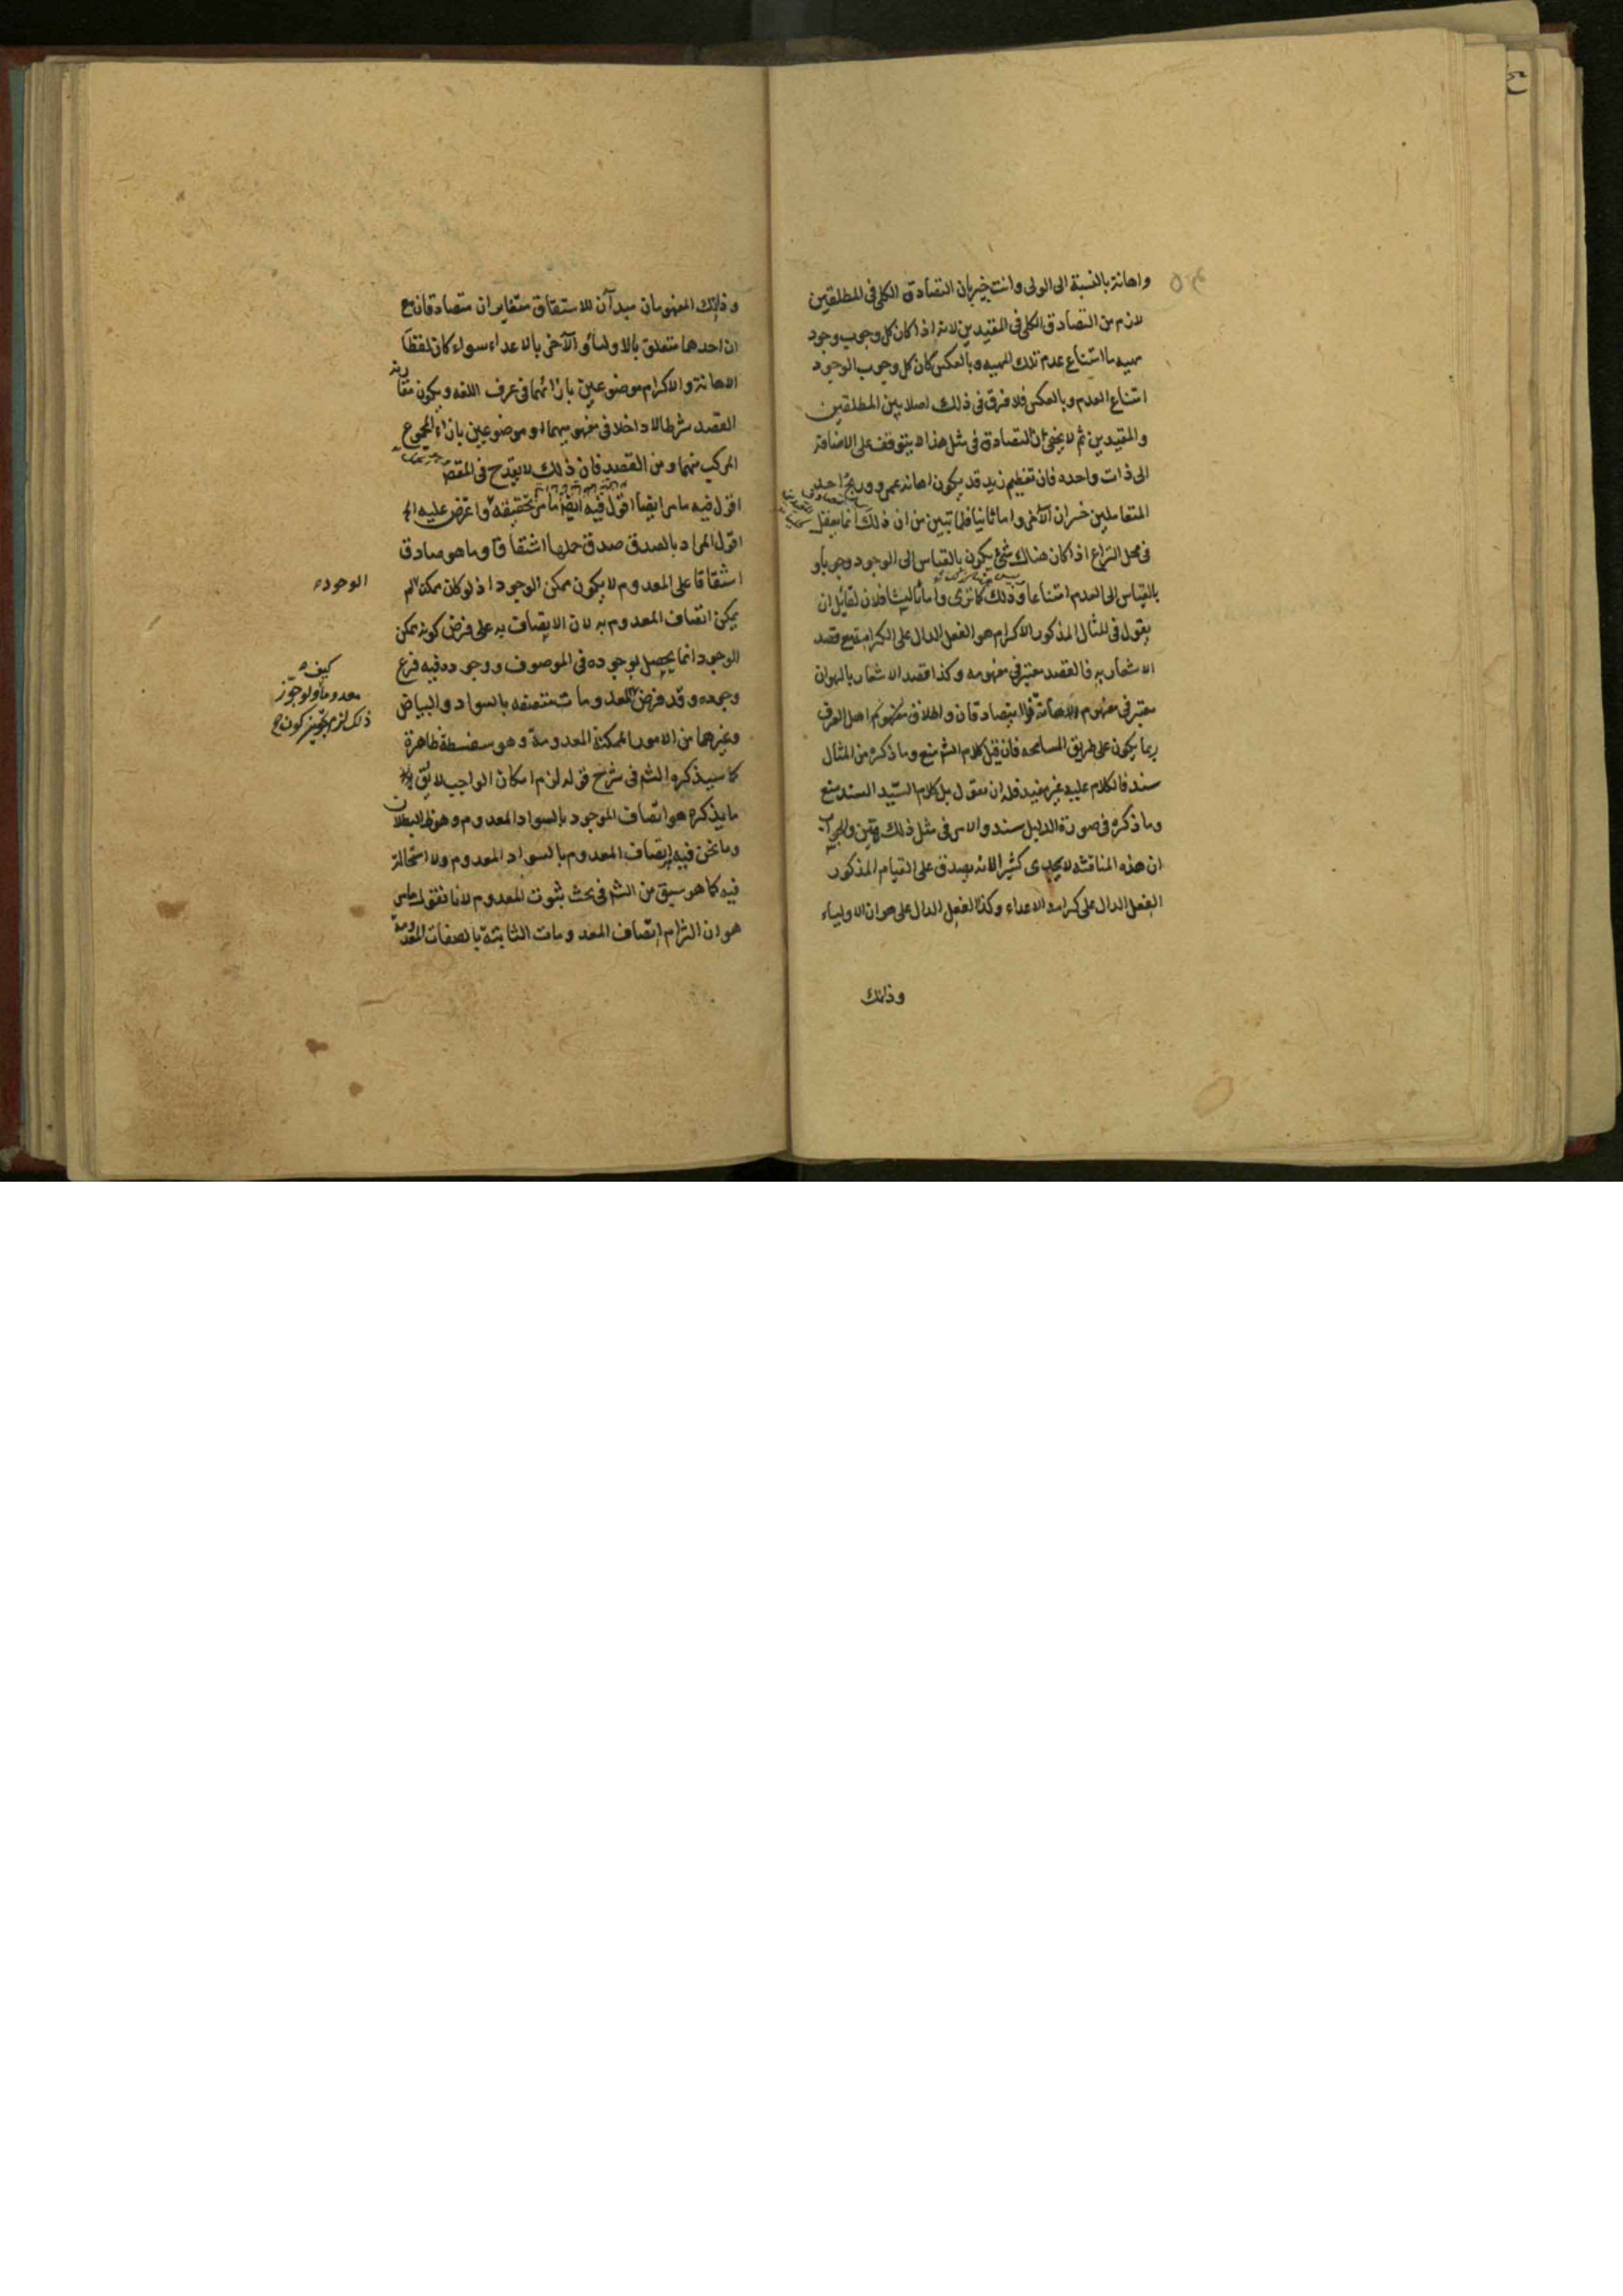 واهانة بالنسبة الى الولى وانت خبير بان التصادق الكلى فى المطلقين
لازم من التصادق الكلى فى المقيدين لانه اذا كان كل وجوب وجود
مهيه ما امتناع عدم تلك المهيه وبالعكس كان كل وجوب الوجود
امتناع العدم وبالعكس فلا فرق فى ذلك اصلا بين المطلقين
والمقيدين ثم لا يخفى ان التصادق فى مثل هذا لا يتوقف على الاضافة
الى ذات واحده فان تعظيم زيد قد يكون اهانة عمرو وربح احد
المتعاملين خسران الآخر واما ثانيا فلما تبين من ان ذلك انما
فى محل النزاع اذا كان هناك شئ يكون بالقياس الى الوجود وجوبا و
بالقياس الى العدم امتناعا وذلك كما ترى واما ثالثا فلان لقائل ان
يقول فى المثال المذكور الاكرام هو الفعل الدال على الكرامة مع قصد
الاشعار به فالقصد معتبر فى مفهومه وكذا قصد الاشعار بالهوان
معتبر فى مفهوم الاهانة فلا يتصادقان واطلاق اهل العرف
ربما يكون على طريق المسامحه فان قيل كلام الشم منع وما ذكره من المثال
سند فالكلام عليه غير مفيد قلنا ان نقول بل كلام السيد السند منع
وما ذكره فى صورة الدليل سند والامر فى مثل ذلك هين والجواب
ان هذه المناقشه لا يجدى كثيرا لانه يصدق على القيام المذكور
الفعل الدال على كرامة الاعداء وكذا الفعل الدال على هوان الاولياء
وذانك
وذانك المفهومان مبدآن للاشتقاق متغايران متصادقان مع
ان احدهما متعلق بالاولياء والآخر بالاعداء سواء كان لفظا
الاهانة والاكرام موضوعين بازائهما فى عرف اللغه ويكون مقارنة
القصد شرطا لا داخلا فى مفهوميهما او موضوعين بازاء المجموع
المركب منهما ومن القصد فان ذلك لا يقدح فى المقصد
اقول فيه ما مر ايضا اقول فيه ايضا ما مر تحقيقه واعترض عليه الخ
اقول المراد بالصدق صدق حملها اشتقاقا وما هو صادق
اشتقاقا على المعدوم لا يكون ممكن الوجود اذ لو كان ممكنا لم
يمكن اتصاف المعدوم به لان الاتصاف به على فرض كونه ممكن
الوجود انما يحصل بوجوده فى الموصوف ووجوده فيه فرع
وجوده وقد فرض المعدومات متصفه بالسواد والبياض
وغيرهما من الامور الممكنة المعدومة وهو سفسطة ظاهرة
كما سيذكره الشم فى شرح قوله لزم امكان الواجب لا يق
ما يذكره هو اتصاف الموجود بالسواد المعدوم وهو ظ البطلان
وما نحن فيه اتصاف المعدوم بالسواد المعدوم ولا استحالة
فيه كما هو سبق من الشم فى بحث ثبوت المعدوم لانا نقول
هو ان التزام اتصاف المعدومات الثابتة بالصفات المعدومة
الوجود
كيف
معدوما ولو جوز
ذلك لزم تجويز كون